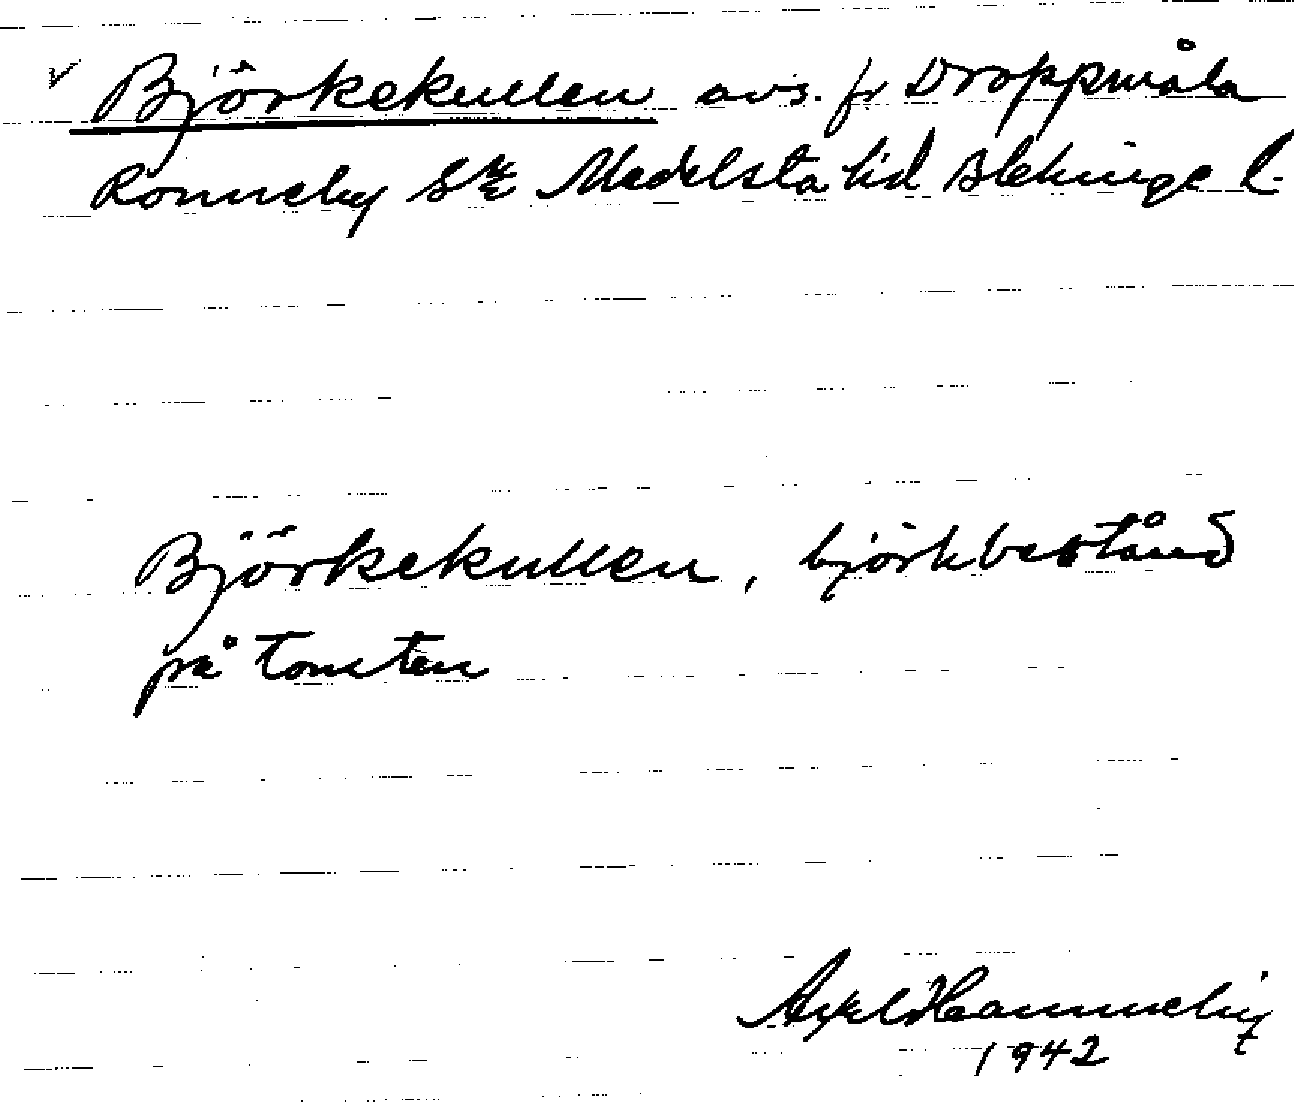 Björkekullen avs. fr Droppmåla
Ronneby Sn Medelsta hd Blekinge l.
Björkekullen, björkbestånd
på tomten
Axel
1942